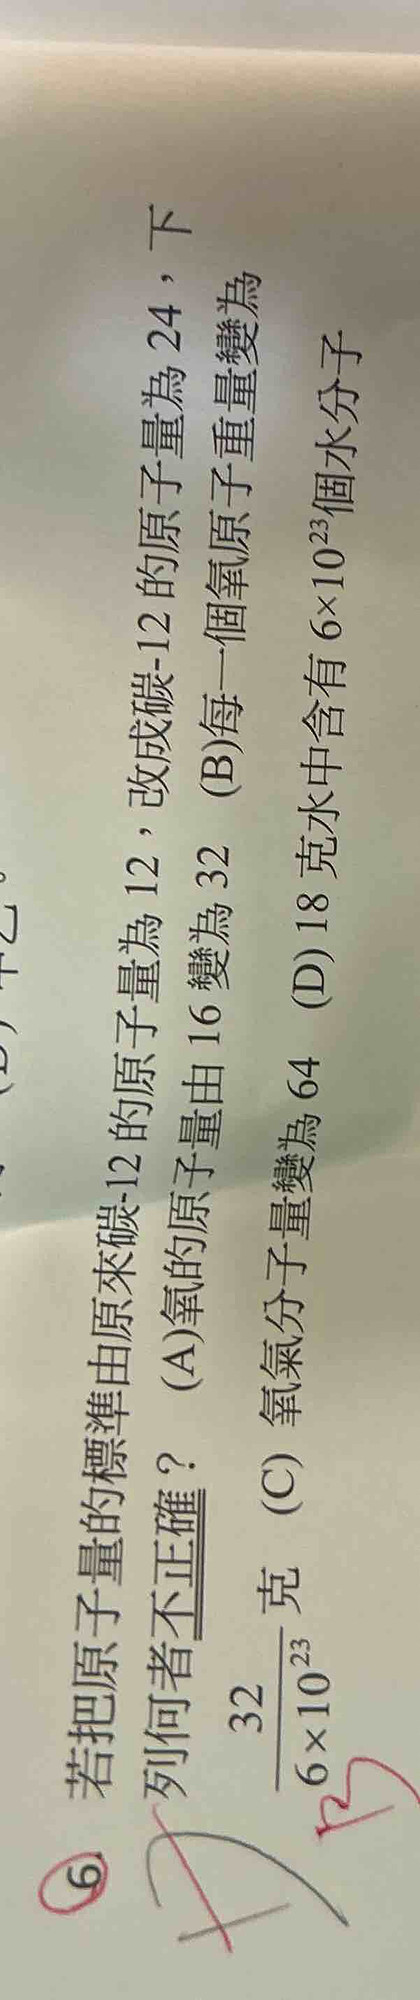 6. 若把原子量的標準由原來碳-12 的原子量為 12，改成碳-12 的原子量為 24，下
列何者不正確？ (A)氧的原子量由 16 變為 32 (B)每一個氧原子重量變為
32/(6×10²³) 克 (C) 氧氣分子量變為 64 (D) 18 克水中含有 6×10²³個水分子
B